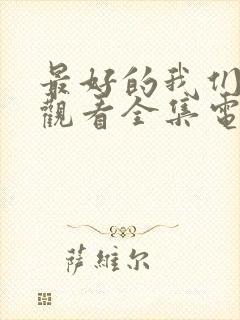 最好的我们
觀看全集電
萨維尔